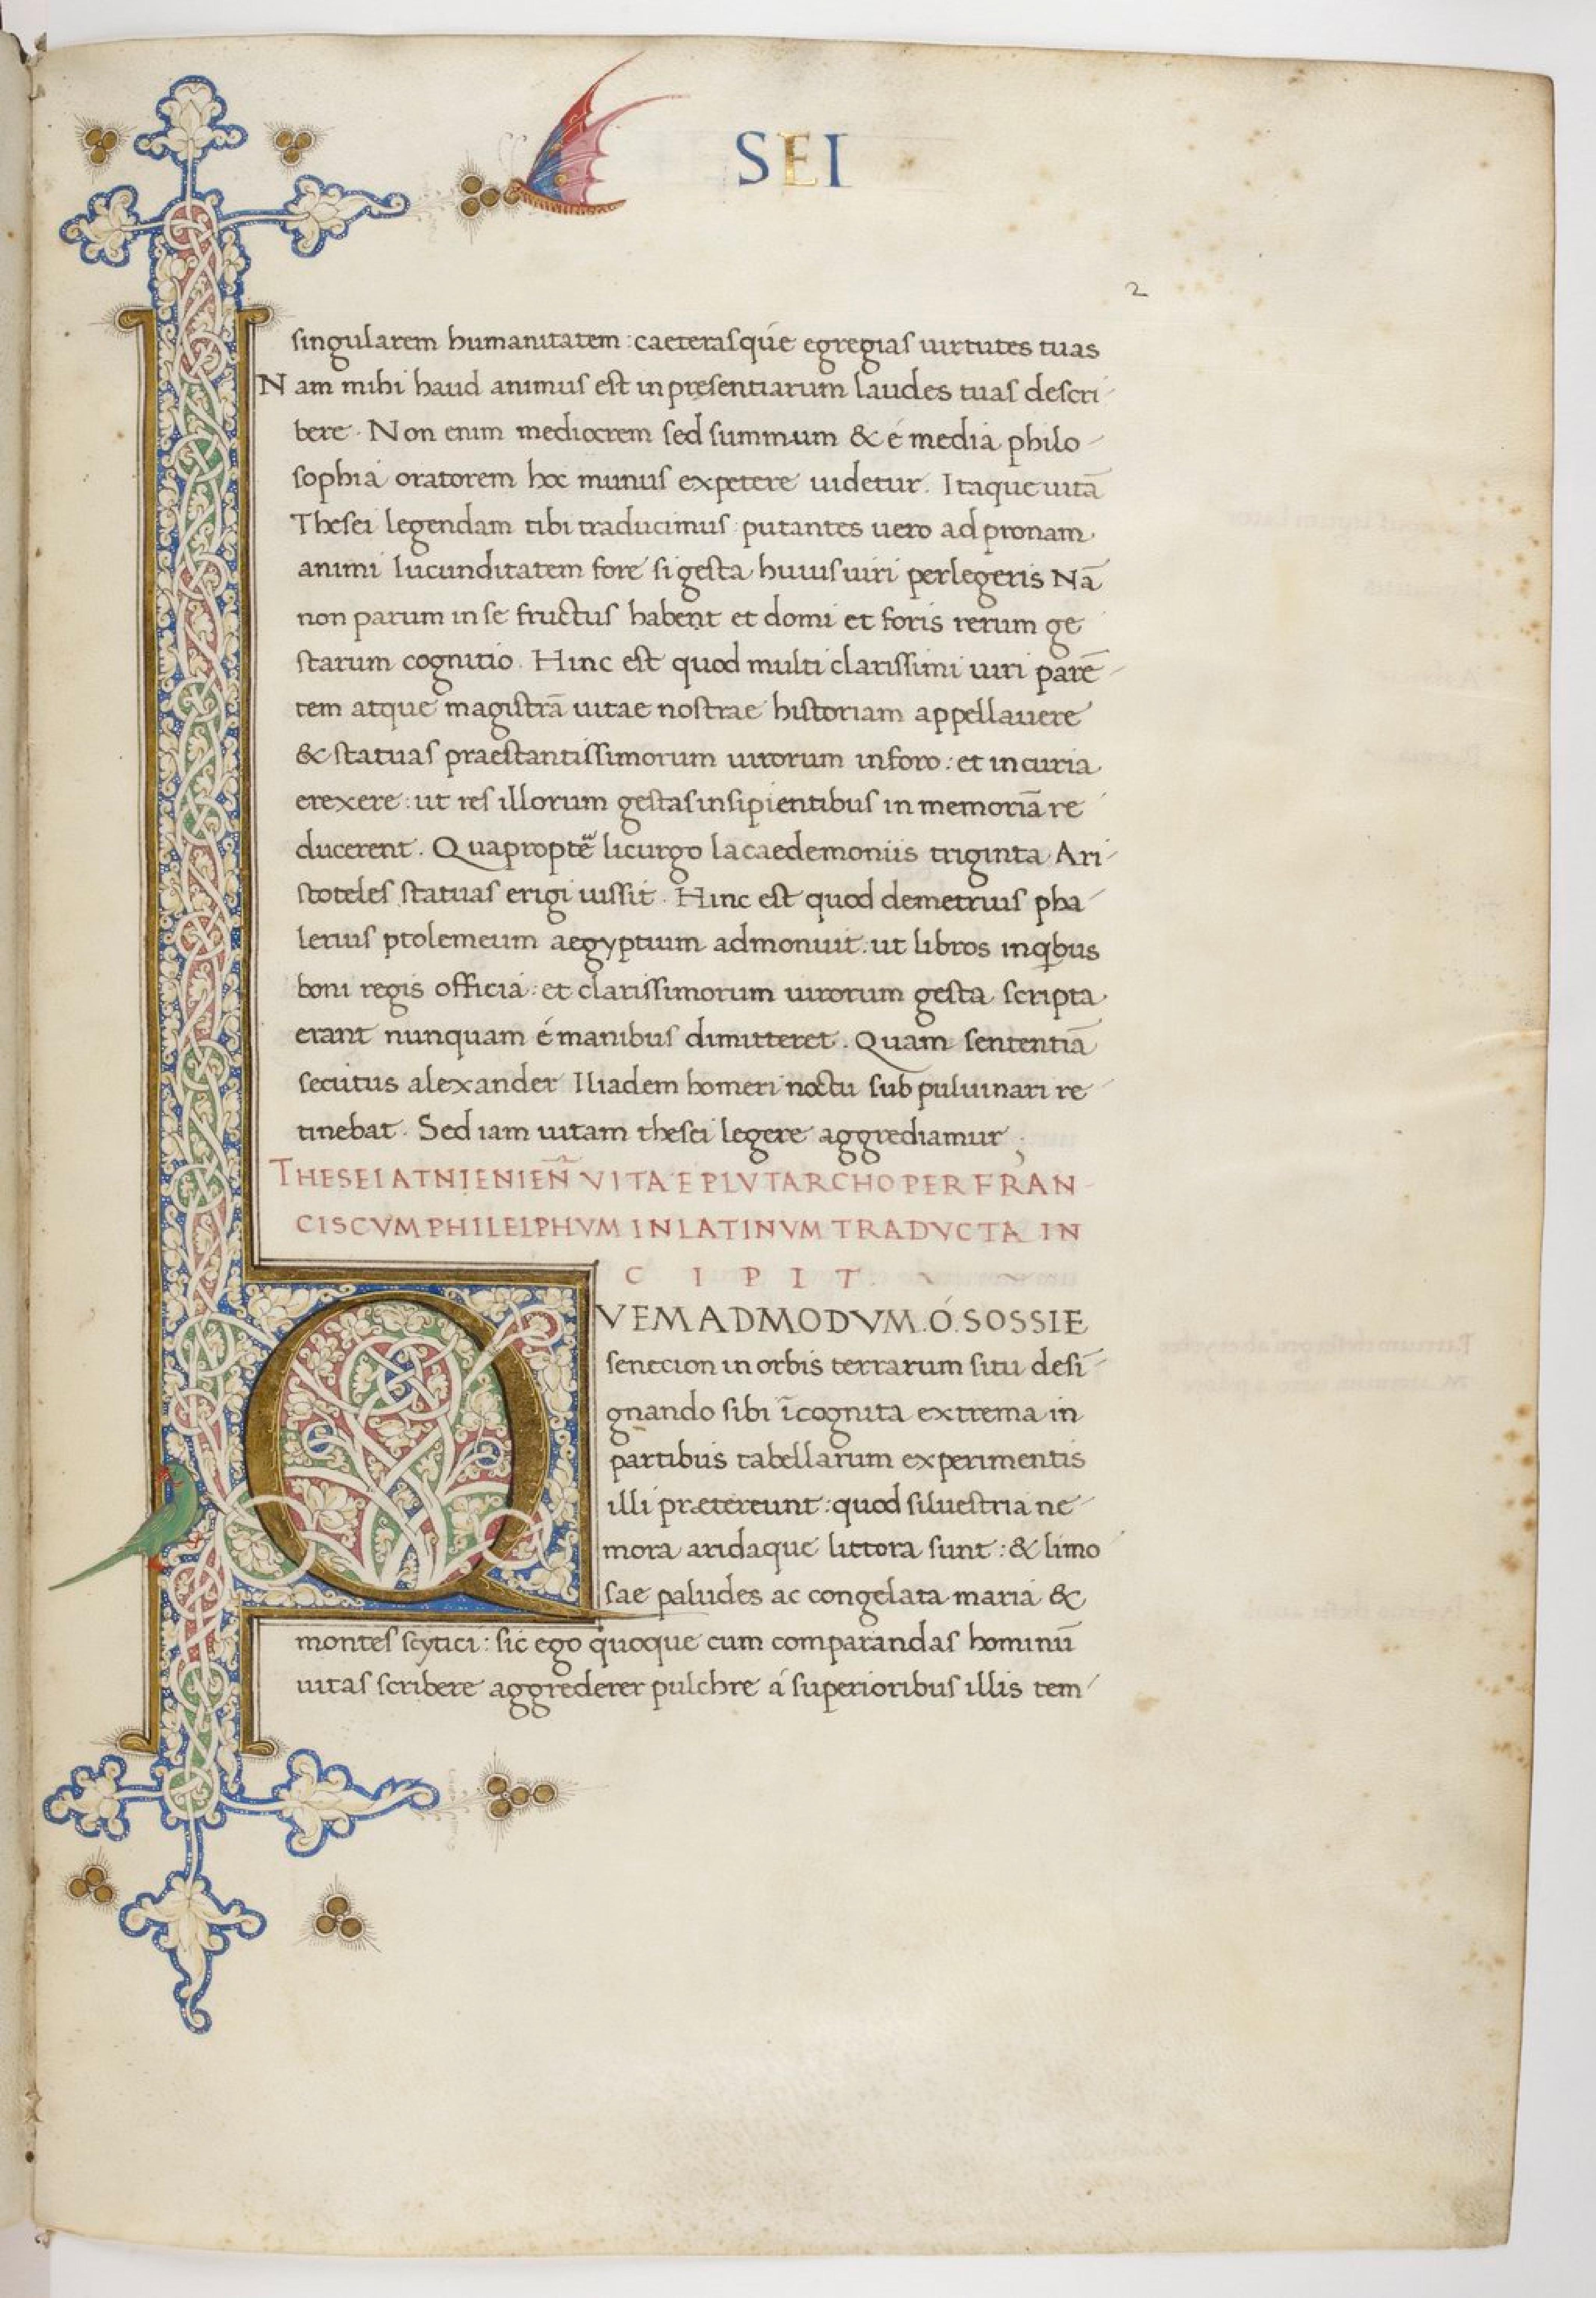 SEI
2
singularem humanitatem : caeterasque egregias uirtutes tuas
Nam mihi haud animus est in presentiarum laudes tuas descri-
bere. Non enim mediocrem sed summum & é media philo-
sophia oratorem hoc munus expetere uidetur. Itaque uitā
Thesei legendam tibi traducimus : putantes uero ad pronam
animi iucunditatem fore si gesta huius uiri perlegeris Nā
non parum in se fructus habent et domi et foris rerum ge
starum cognitio. Hinc est quod multi clarissimi uiri parē-
tem atque magistrā uitae nostrae historiam appellauere
& statuas praestantissimorum uirorum in foro : et in curia
erexere : ut res illorum gestas insipientibus in memoriā re
ducerent. Quapropter licurgo lacaedemoniis triginta Ari-
stoteles statuas erigi iussit. Hinc est quod demetrius pha-
lerius ptolemeum aegyptium admonuit : ut libros in qbus
boni regis officia : et clarissimorum uirorum gesta scripta
erant nunquam é manibus dimitteret. Quam sententiā
secutus alexander Iliadem homeri noctu sub puluinari re-
tinebat. Sed iam uitam thesei legere aggrediamur ;
THESEI ATNIENIEÑ VITA E PLVTARCHO PER FRAN-
CISCVM PHILELPHVM IN LATINVM TRADVCTA IN
CIPIT.
QVEMADMODVM. Ó. SOSSIE
senecion in orbis terrarum situ desi-
gnando sibi īcognita extrema in
partibus tabellarum experimentis
illi prætereunt : quod siluestria ne-
mora aridaque littora sunt : & limo
sae paludes ac congelata maria &
montes scytici : sic ego quoque cum comparandas hominū
uitas scribere aggrederer pulchre á superioribus illis tem-